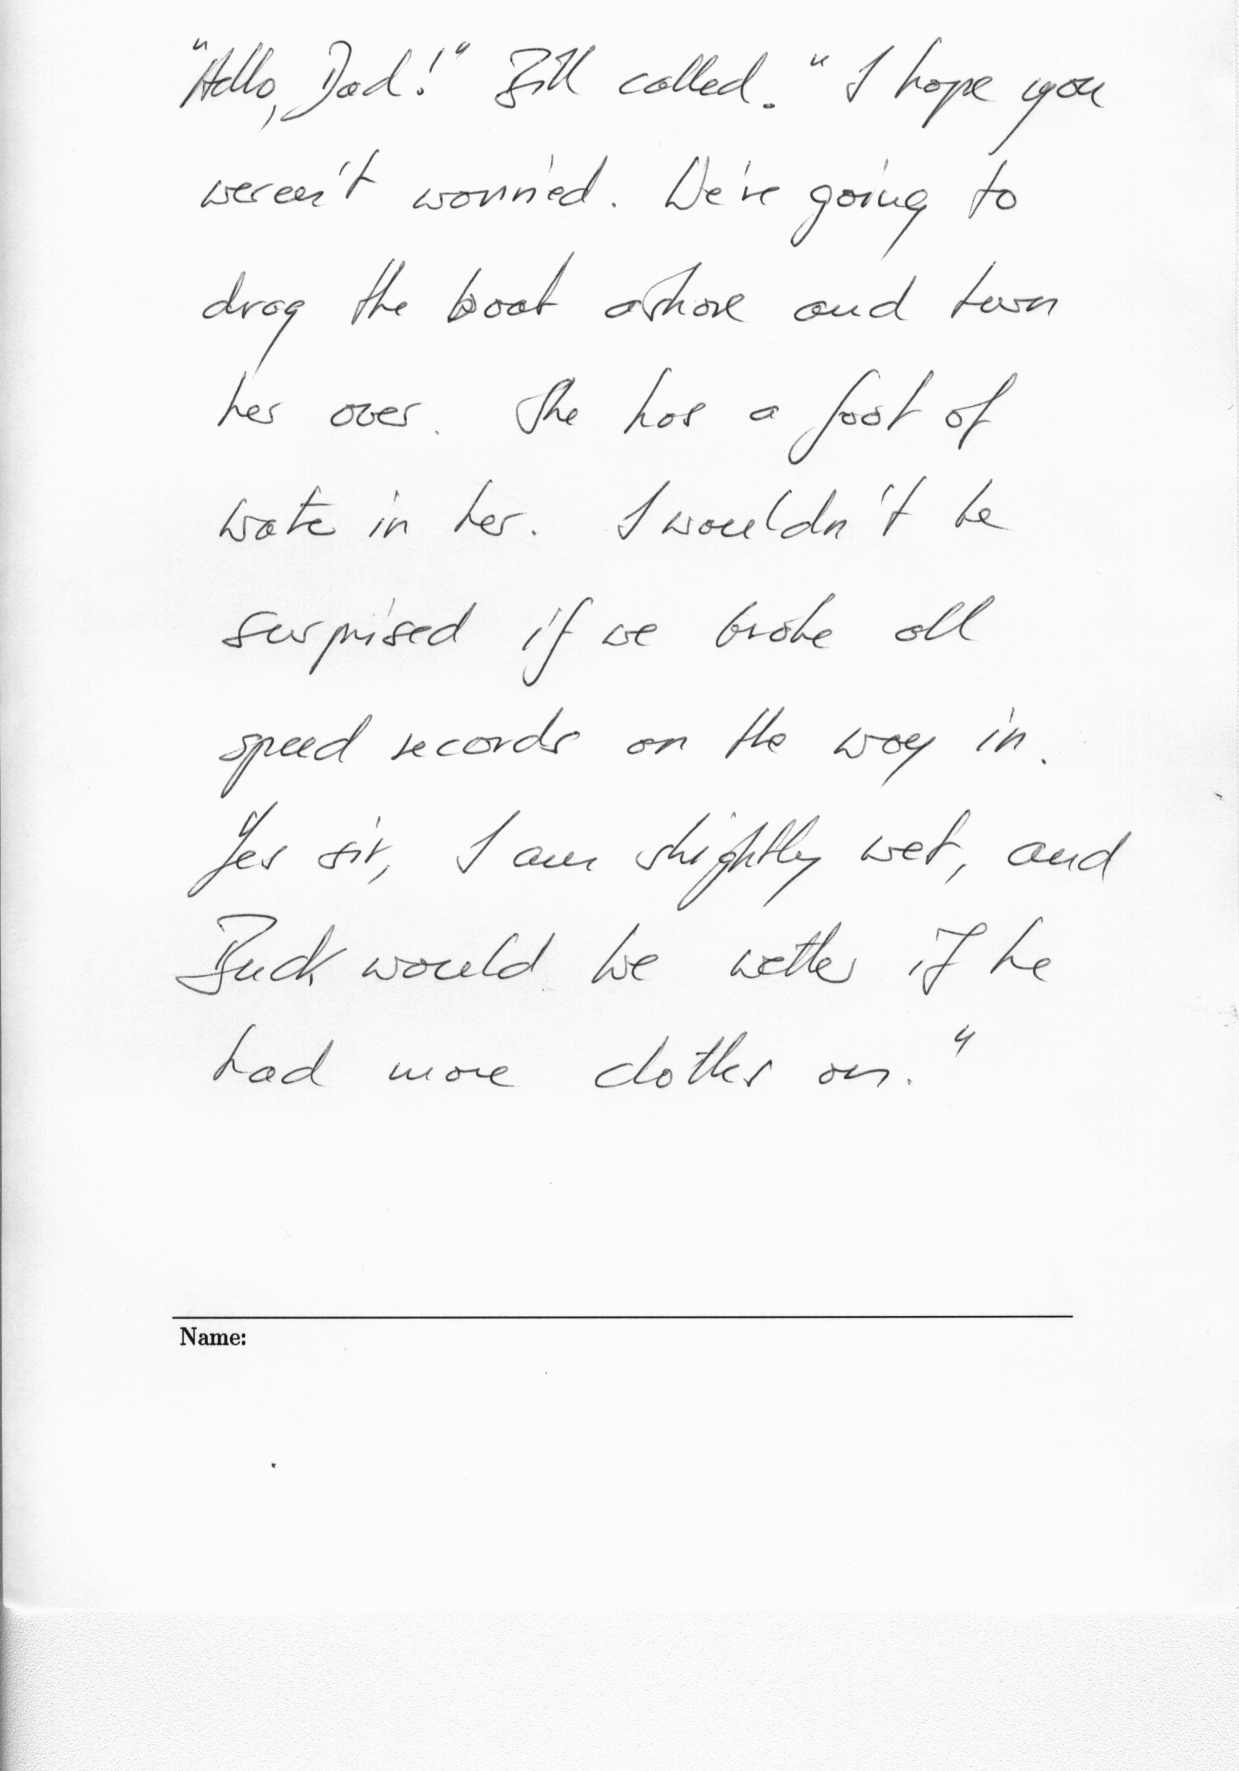 "Hello, Dad!" Bill called. "I hope you
weren't worried. We're going to
drag the boat ashore and turn
her over. She has a foot of
water in her. I wouldn't be
surprised if we broke all
speed records on the way in.
Yes sir, I am slightly wet, and
Buck would be wetter if he
had more clothes on."
Name: